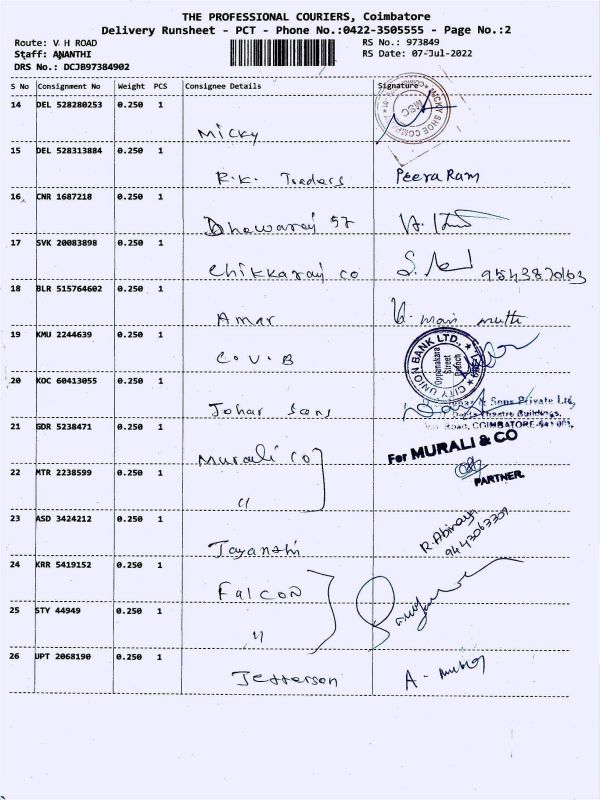 THE PROFESSIONAL COURIERS, Coimbatore
Delivery Runsheet - PCT - Phone No.:0422-3505555 - Page No.:2
Route: V H ROAD
RS No.: 973849
Staff: ANANTHI
RS Date: 07-Jul-2022
DRS No.: DCJB97384902
S No Consignment No Weight PCS Consignee Details Signature
14 DEL 528280253 0.250 1
Micky
MICKY SHOE COMP
MSC
15 DEL 528313884 0.250 1
R.K. Traders Peera Ram
16 CNR 1687218 0.250 1
Dhawaraj 57
17 SVK 20083898 0.250 1
Chikkaraj co
18 BLR 515764602 0.250 1
Amar
19 KMU 2244639 0.250 1
C.U.B
CITY UNION BANK LTD.,
Oppanakara
Street
Branch
20 KOC 60413055 0.250 1
Johar Sons
& Sons Private Ltd,
Theatre Buildings,
Road, COIMBATORE-641 001,
21 GDR 5238471 0.250 1
Murali Co
For MURALI & CO
PARTNER.
22 MTR 2238599 0.250 1
"
23 ASD 3424212 0.250 1
Jayanthi
R. Abinaya
9443063309
24 KRR 5419152 0.250 1
Falcon
25 STY 44949 0.250 1
"
26 UPT 2068190 0.250 1
Jefferson